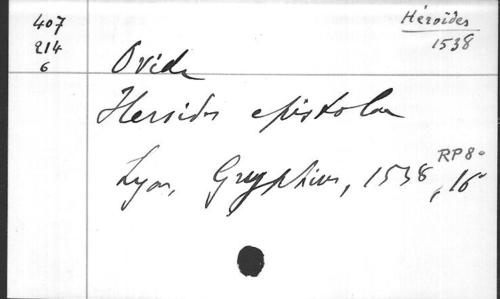 407
214
6
Héroïdes
1538
Ovide
Heroides epistolae
Lyon, Gryphius, 1538, 16°
RP 8°